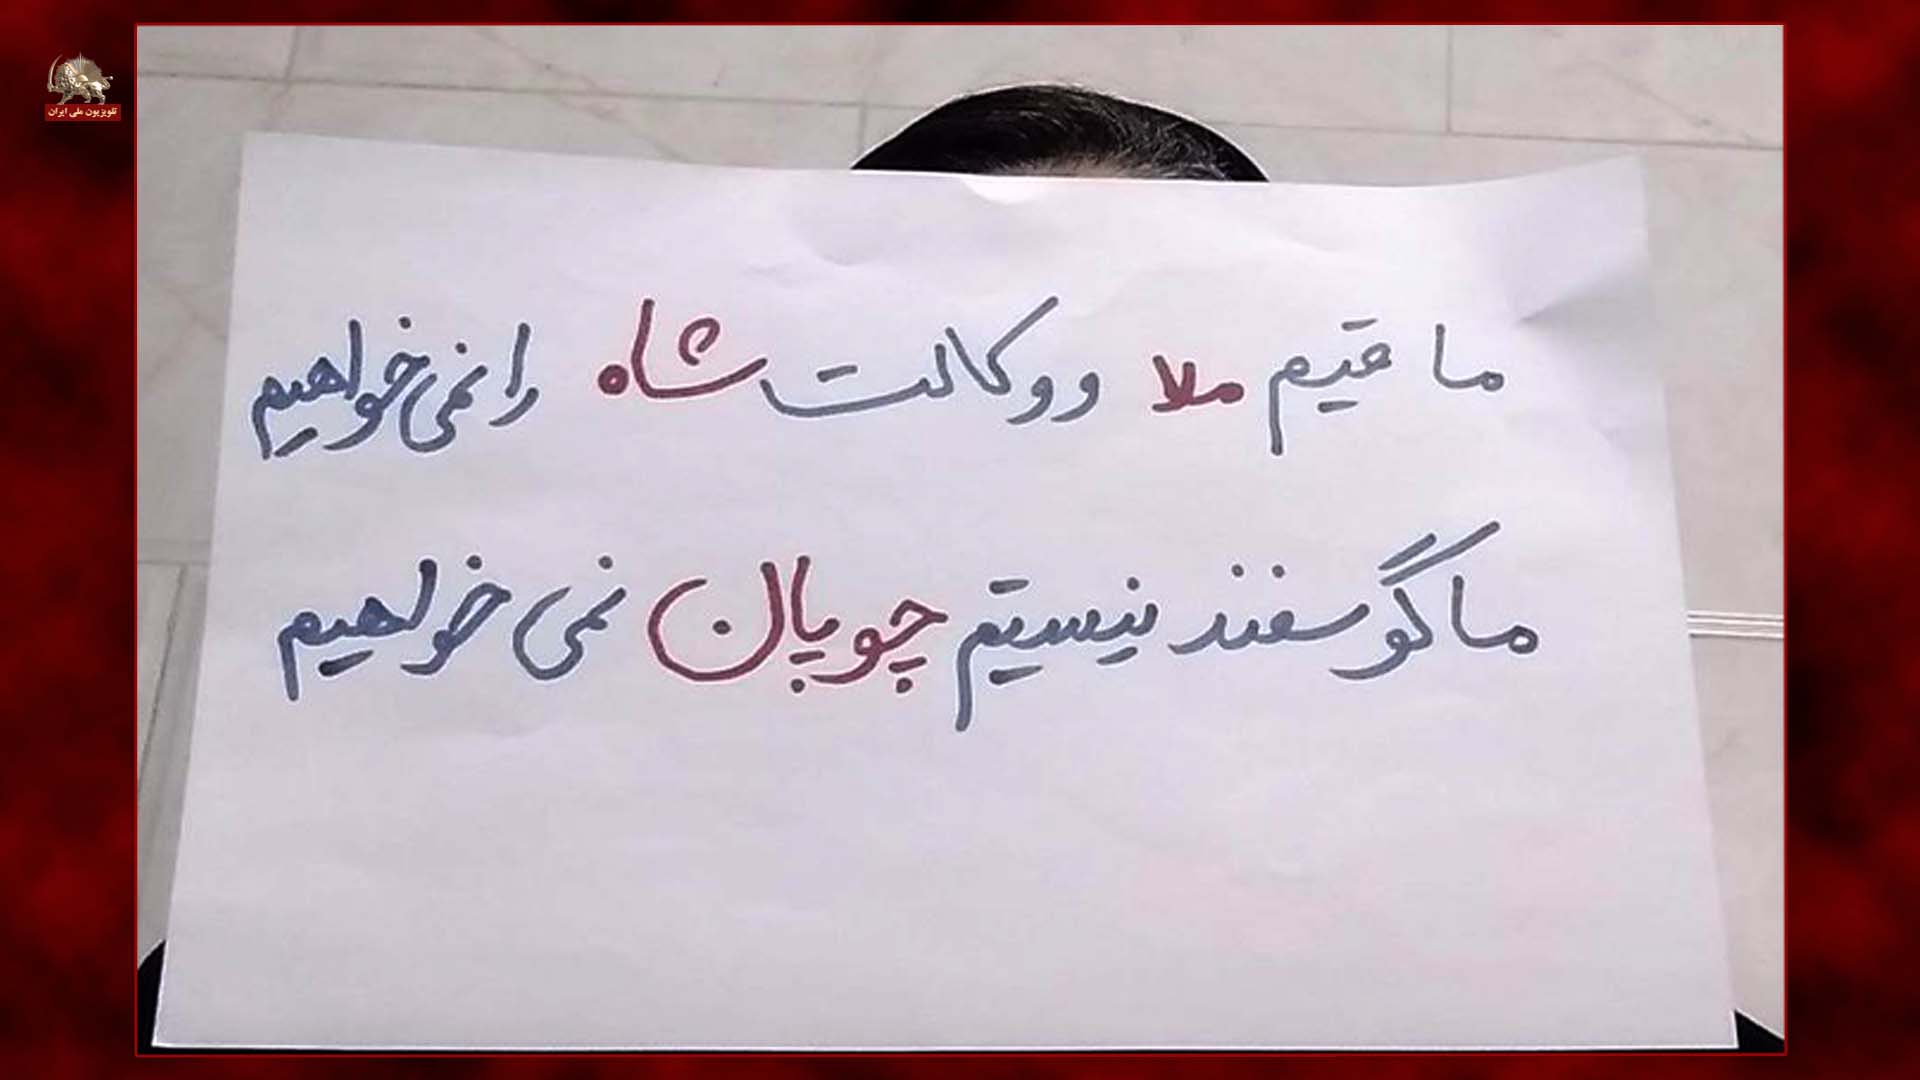 تلویزیون ملی ایران
ما قیم ملا و وکالت شاه را نمی خواهیم
ما گوسفند نیستیم چوپان نمی خواهیم